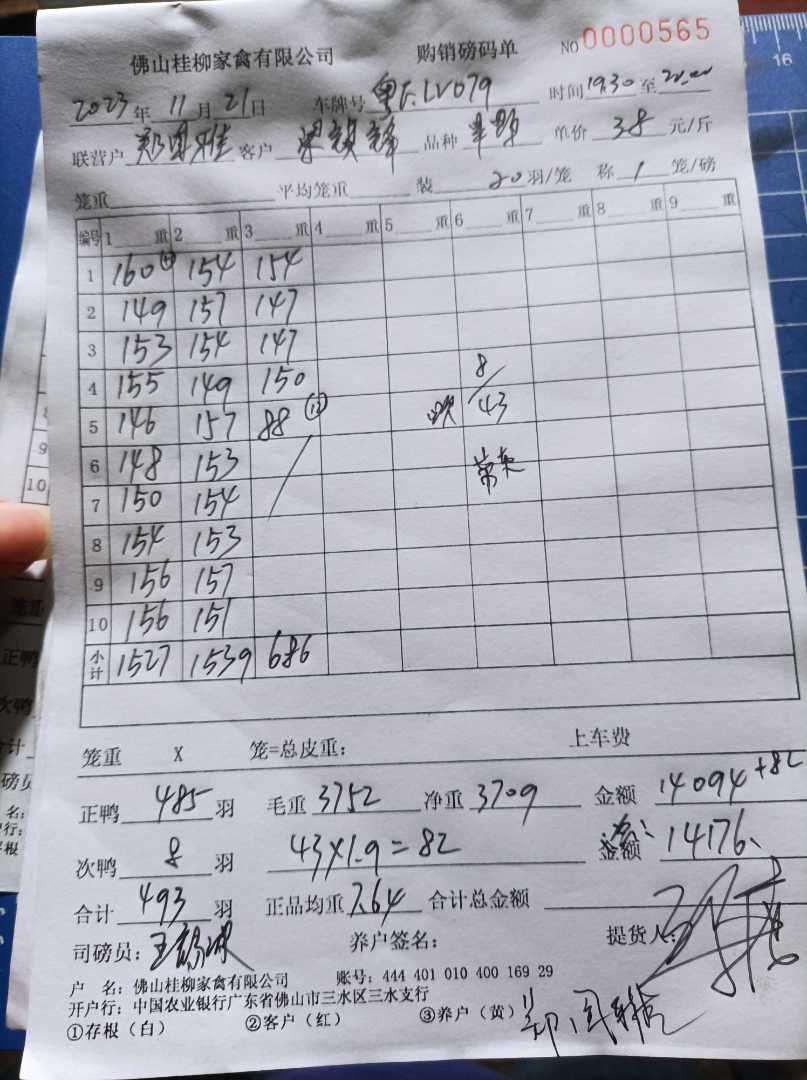 佛山桂柳家禽有限公司 购销磅码单 NO 0000565
2023年 11月 21日 车牌号 粤F.LV079 时间 19:30 至
联营户 客户 品种 单价 3.8 元/斤
笼重 平均笼重 装 20 羽/笼 称 1 笼/磅
编号 1 重 2 重 3 重 4 重 5 重 6 重 7 重 8 重 9 重
1 160 154 154
2 149 157 147
3 153 154 147
4 155 149 150 8
5 146 157 88 ⑫ 次 43
6 148 153
7 150 154
8 154 153
9 156 157
10 156 151
小计 1527 1539 686
笼重 X 笼=总皮重: 上车费
正鸭 485 羽 毛重 3752 净重 3709 金额 14094+82
次鸭 8 羽 43×1.9=82 金额 14176
合计 493 羽 正品均重 7.64 合计总金额
司磅员: 养户签名: 提货人:
户 名: 佛山桂柳家禽有限公司 账号: 444 401 010 400 169 29
开户行: 中国农业银行广东省佛山市三水区三水支行
①存根(白) ②客户(红) ③养户(黄)